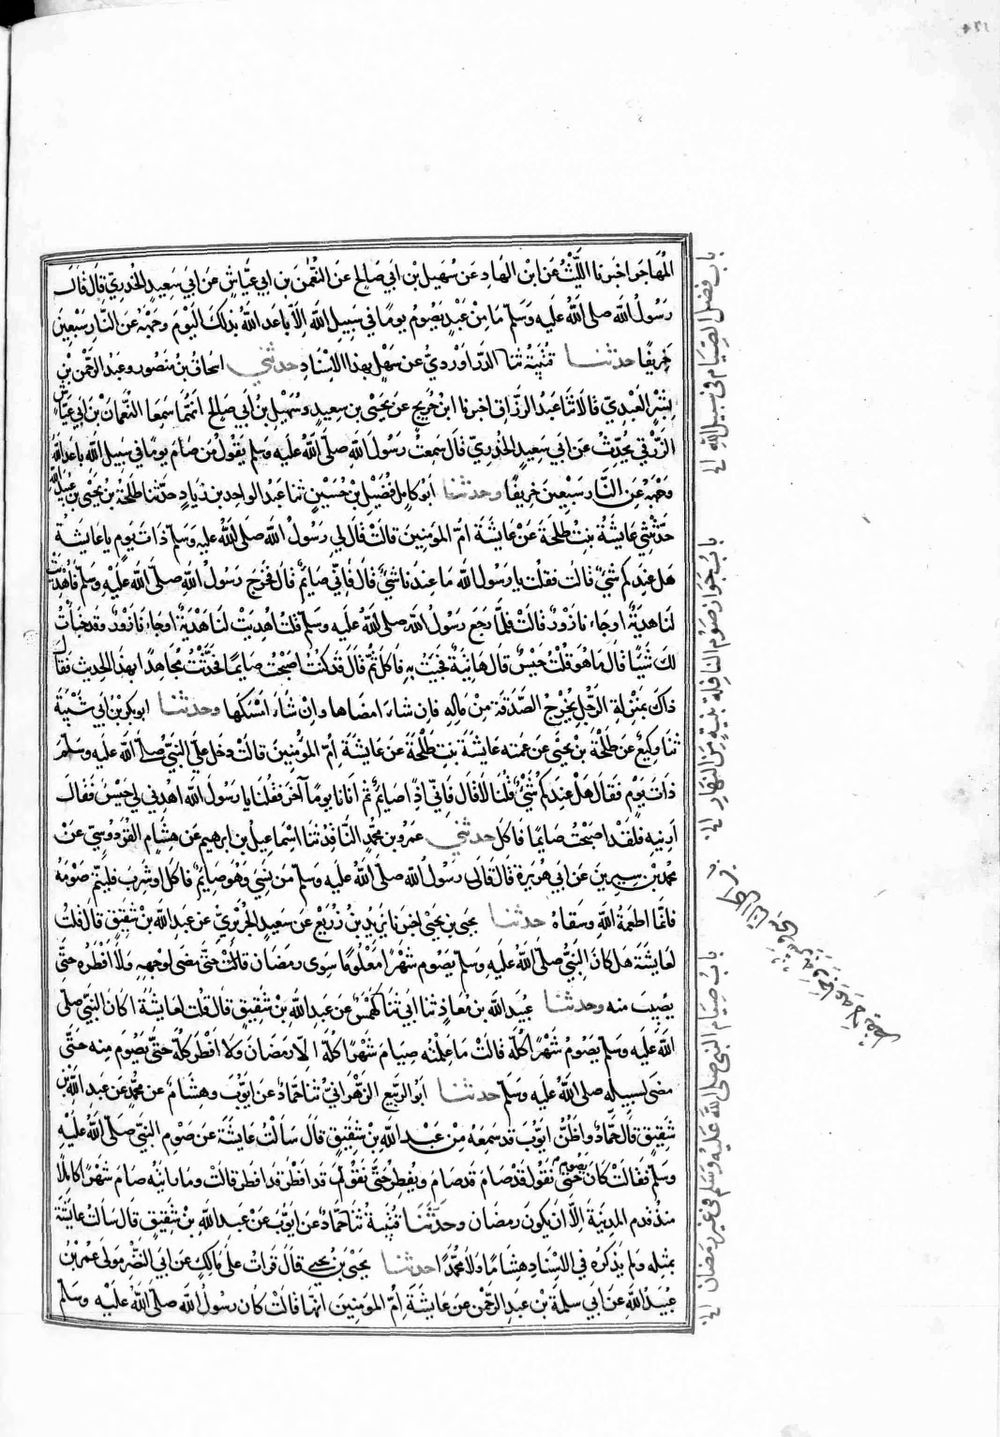 المُهَاجر اخبرنا اللَّيْثُ عَن ابْن الهَادِ عَن سُهَيل بْن ابي صَالِح عَن النُّعْمٰن بن ابي عَيَّاش عَن ابي سَعِيدٍ الخُدرِيّ قال قَالَ
رَسُولُ الله صلى اللهُ عَليه وَسَلَّم مَا مِنْ عَبْدٍ يَصُومُ يومًا في سَبيل الله اِلَّا بَاعد اللهُ بذلك اليَوْمَ وجْهَهُ عن النَّار سَبْعِينَ
خريفًا حدثنا قُتَيْبَةُ ثنا الدَّرَاوَرْدِيُّ عن سهْلٍ بهذا الاسْنَادِ حدثني اسحاقُ بن مَنْصُور وعبْد الرَّحْمٰن بْنِ
بِشْرٍ العَبْدِيّ قالا ثنا عَبْدُ الرزَّاق اخبرنا ابْن جُرَيج عَن يَحْيَى بن سَعِيدٍ وسُهَيْل بن ابي صَالح انَّهُمَا سَمِعَا النُّعْمَانَ بْن ابي عَيَّاش
الزُّرَقي يُحَدِّثُ عَن ابي سَعِيد الخُدريّ قَالَ سَمِعْتُ رَسُولَ الله صَلَّى اللهُ عَلَيه وَسَلم يَقُولُ مَن صَامَ يومًا في سبيل اللهِ بَاعَد اللهُ
وَجْهَهُ عَن النَّار سَبْعِينَ خريفًا وحدثنا أبُو كامِل فُضَيْل بن حُسَيْنٍ ثنا عَبْدُ الواحِد بن زيَادٍ حَدَّثنا طَلحَةُ بن يَحْيَى بن عُبَيْد الله
حَدَّثتْنِي عَايشَةُ بنتُ طلحَةَ عَنْ عَايشَةَ امِّ المومنِينَ قالتْ قَالَ لي رَسُولُ الله صلى اللهُ عليه وَسَلّم ذَاتَ يَومٍ يا عَايشَةُ
هل عندكم شيٌ قالت فقُلتُ يا رسُولَ الله مَا عِندنا شيٌ قَالَ فَاِنّي صَايمٌ قالَ فَخَرَجَ رسُولُ الله صَلّى الله عَليْهِ وَسَلَّم فأُهْدِيَتْ
لَنَا هديَةٌ اوجَاءَنا زَوْرٌ قالَتْ فلمَّا رجَع رَسُولُ الله صَلى اللهُ عليه وَسَلّم قلتُ اُهْدِيَتْ لنَا هَدِيَةٌ اوجاءَنا زَوْرٌ وقد خَبَأتُ
لكَ شَيْئًا قالَ مَا هو قُلْتُ حَيْسٌ قال هَاتِيهِ فجئتُ بهِ فَاكلَ ثُمَّ قالَ قَد كنتُ اصْبَحْتُ صَايمًا فحَدَّثتُ مُجَاهدًا بهذا الحدِيث فقَالَ
ذاكَ بمنْزلة الرَّجُل يُخْرجُ الصَّدَقةَ مِنْ مَالِهِ فاِن شاءَ امضَاهَا وان شَاءَ امْسَكهَا وحدثنا ابو بكر بْنُ ابي شَيْبَةَ
ثنا وكيعٌ عَن طَلْحَةَ بن يَحْيَى عَن عَمته عَايشَةَ بنت طَلْحَةَ عَن عَايشَةَ امِّ المُؤْمِنِينَ قالتْ دخل عَلَيَّ النَّبيُّ صَلّى الله عليه وسَلّم
ذَات يَوْمٍ فقال هَلْ عِندكُم شَيْءٌ قُلْنَا لا قَالَ فاِنّي اذًا صايمٌ ثم اتَانَا يومًا آخر فقُلنا يا رسُولَ الله اُهْدِي لي حَيْسٌ فقالَ
اَرينِيهِ فلقَدْ اصبَحْتُ صَايمًا فاكلَ حدثني عَمرُو بن مُحَمَّدٍ النَّاقدُ ثنا اسْمَاعيلُ بن ابرهيم عَن هِشَامٍ القُرْدوسِيِّ عَنْ
مُحمَّد بْن سيرينَ عَن ابي هُرَيرَةَ قَالَ قالَ رسُولُ الله صلى اللهُ عَليْه وَسَلّم مَن نَسِيَ وَهُوَ صَايمٌ فاكلَ اوْ شَرِبَ فليُتمَّ صَوْمَهُ
فانَّمَا اطعَمَهُ اللهُ وسَقاهُ حدثنا يحيى بن يَحْيَى اخبرنا يَزيدُ بن زُرَيْعٍ عَن سَعِيدٍ الجُرَيْرِيِّ عَن عَبدِ الله بْن شَقِيقٍ قَالَ قُلتُ
لعَايشَةَ هل كانَ النَّبيُّ صَلَّى اللهُ عَليْهِ وَسَلّم يَصُومُ شَهْرًا مَعْلُومًا سوى رمضَانَ قالتْ حَتَّى مضَى لوجْهِهِ ولا أَفْطَرَهُ حتَّى
يصيبَ منه وحدثنا عُبَيدُ الله بن مُعَاذٍ ثنا ابي ثنا كَهْمَسٌ عَن عَبد الله بْن شَقِيقٍ قَالَ قُلْتُ لعَايشَةَ اكَانَ النَّبيُّ صلى
اللهُ عَليه وسَلّم يَصُومُ شَهْرًا كُلَّهُ قالتْ مَا عَلِمْتُه صَامَ شَهرًا كلَّهُ الّا رَمضَانَ ولا افْطَرَ كلّهُ حتى يصُومَ منه حتى
مضَى لسبيله صلى اللهُ عَليه وسَلّم حدثنا ابو الرَّبيع الزَّهْرَانيُّ ثنا حَمَّادٌ عن ايُّوبَ وهِشَامٌ عن مُحَمَّدٍ عن عبدِ الله بْن
شَقِيقٍ قَالَ حَمَّادٌ واظُنُّ ايُّوبَ قد سَمِعَهُ مِنْ عَبْدِ اللهِ بْن شَقِيقٍ قَالَ سَأَلتُ عَايشَةَ عَن صَوْم النَّبيّ صَلَّى اللهُ عَلَيْهِ
وَسَلَّم فقَالتْ كانَ يصُوم حتى نَقُولَ قَدْ صَامَ قد صَامَ ويُفْطِرُ حَتَّى نَقُولَ قد افْطَرَ قد افطر قالتْ وما رايتُهُ صامَ شهْرًا كاملًا
منذ قدم المَدينَةَ الَّا ان يكونَ رمضان وحَدَّثَنَا قُتَيْبَةُ ثنا حَمَّادٌ عن ايّوبَ عَنْ عَبدِ الله بْن شَقِيقٍ قَالَ سَأَلتُ عَايشَةَ
بمثلِهِ ولم يَذْكرْ في الاسْنَادِ هِشَامًا ولا مُحَمَّدًا حدثنا يَحْيَى بْنُ يَحْيَى قالَ قَرَأتُ عَلَى مَالِكٍ عَن ابي النَّضْر مَولى عُمَرَ بْنِ
عُبَيْدِ الله عَنْ ابي سلمَةَ بْن عَبد الرَّحْمٰن عَن عَايشَةَ امِّ المومنِينَ انَّهَا قالتْ كانَ رسُولُ الله صَلّى اللهُ عَلَيْهِ وسَلَّم
باب فضل الصيَام في سبيل الله
بابُ جواز صَوم النافلة بنيةٍ من النهار
باب صيام النبي صلى الله عليه وسلم في غير رمضان